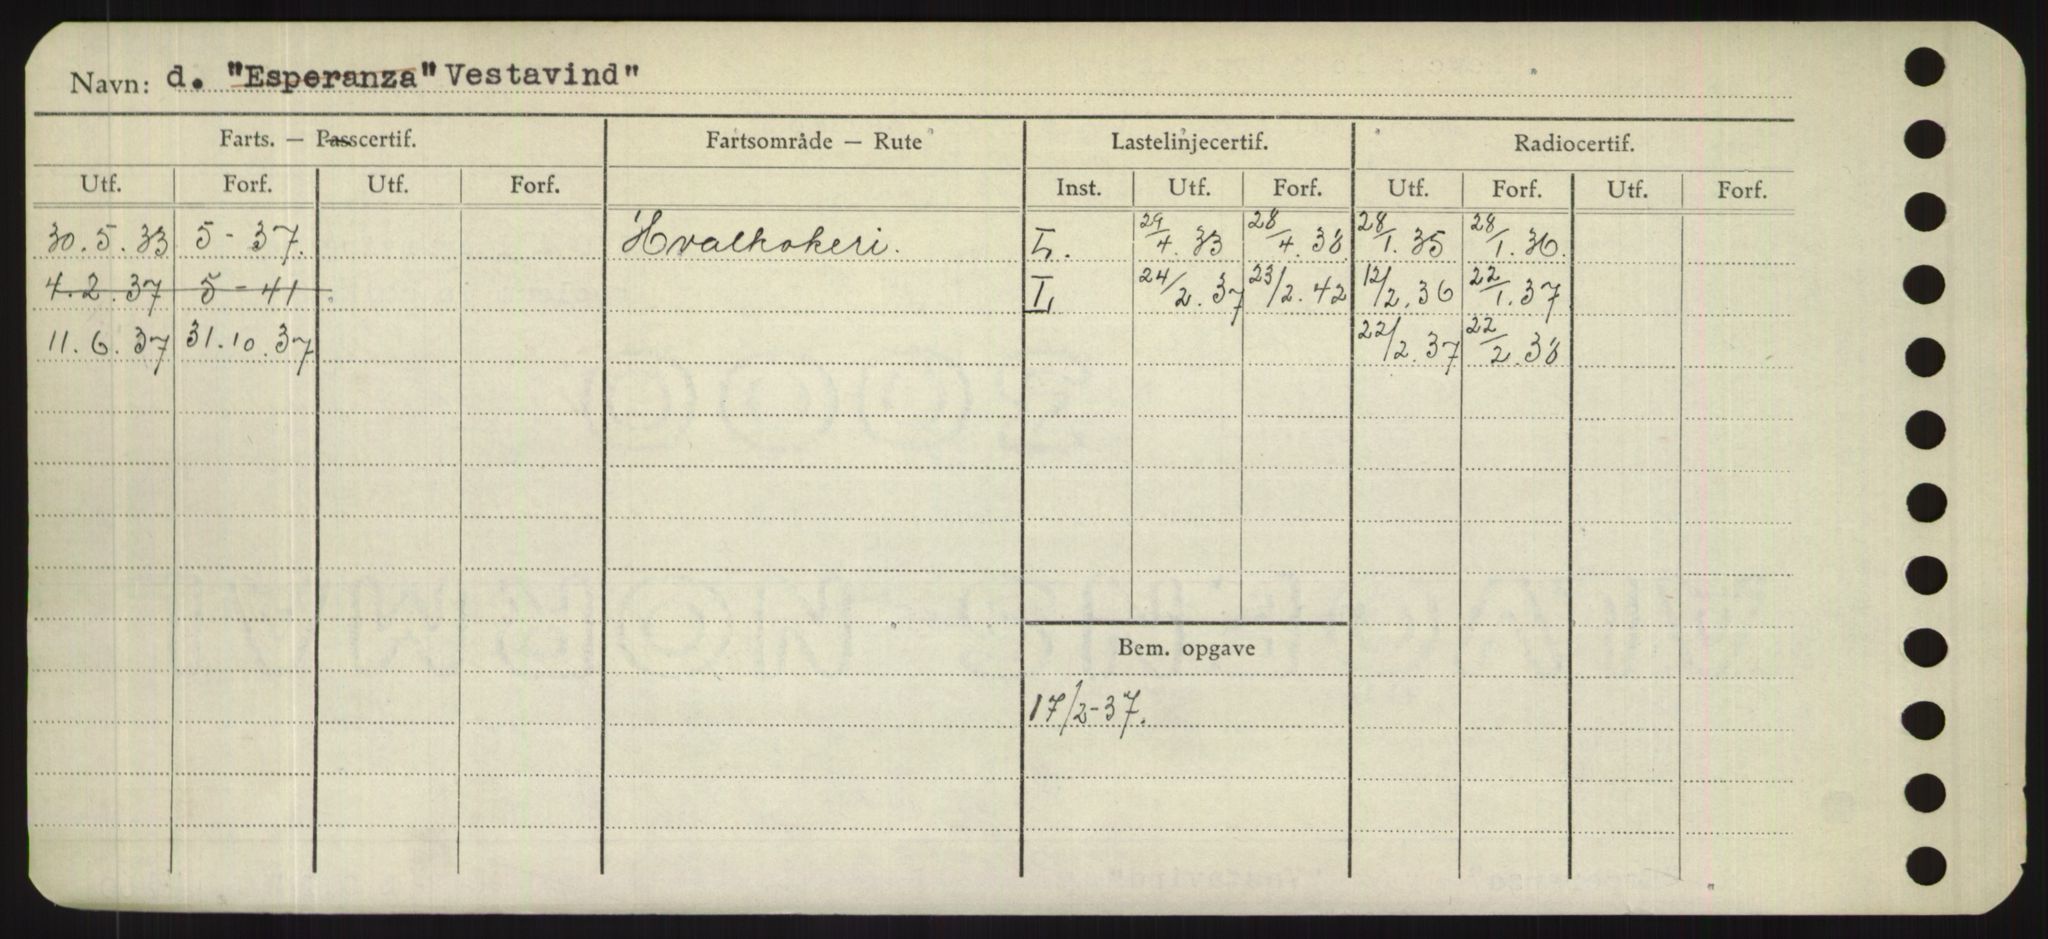 Navn: d. "Esperanza" Vestavind"
Farts. — Passcertif. Fartsområde — Rute Lastelinjecertif. Radiocertif.
Utf. Forf. Utf. Forf. Inst. Utf. Forf. Utf. Forf. Utf. Forf.
30.5.33 5-37. Hvalkokeri. L. 29/4.33 28/4.38 28/1.35 28/1.36.
4.2.37 5-41 L 24/2.37 23/2.42 12/2.36 22/1.37
11.6.37 31.10.37 22/2.37 22/2.38
Bem. opgave
17/2-37.